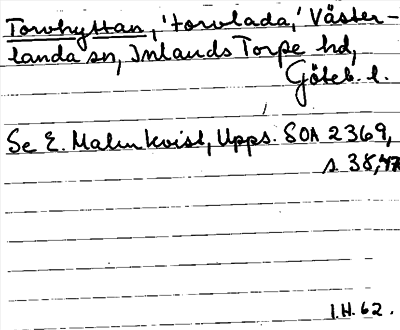 Torvhyttan, 'torvlada,' Väster-
landa sn, Inlands Torpe hd,
Göteb. l.
Se E. Malmkvist, Upps. SOA 2369,
s 38,47
I.H. 62.